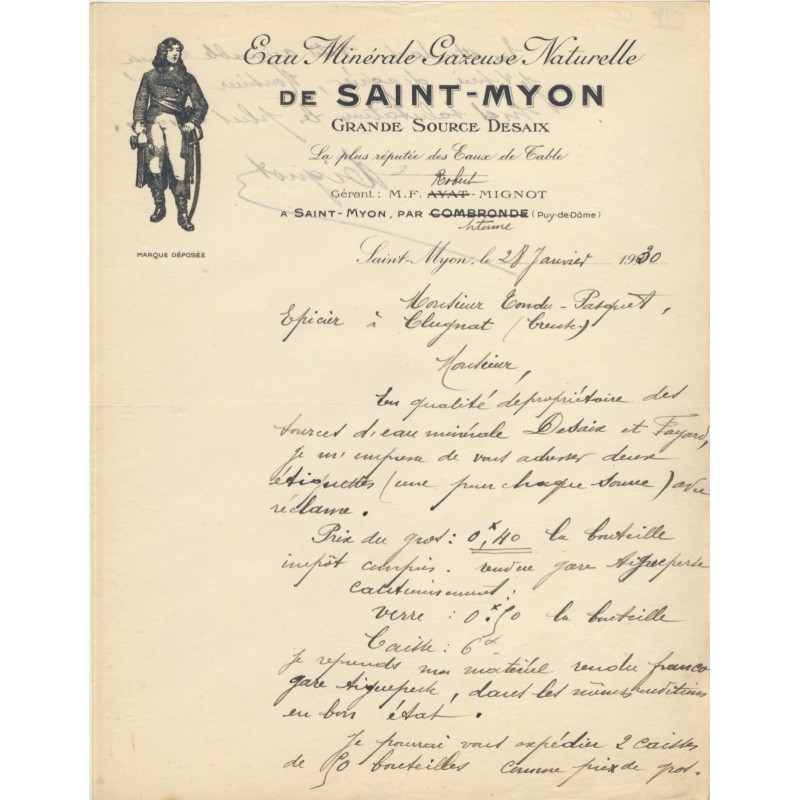 Eau Minérale Gazeuse Naturelle
DE SAINT-MYON
GRANDE SOURCE DESAIX
La plus réputée des Eaux de Table
Robert
Gérant: M.F. AYAT-MIGNOT
A SAINT-MYON, PAR COMBRONDE (PUY-DE-DÔME)
MARQUE DÉPOSÉE
Saint-Myon, le 28 Janvier 1930
Monsieur Tondu-Pasquet,
Epicier à Clugnat (Creuse)
Monsieur,
En qualité de propriétaire des
sources d'eau minérale Desaix et Fayard,
je m'empresse de vous adresser deux
étiquettes (une pour chaque source) avec
réclame.
Prix du gros: 0,40 la bouteille
impôt compris. rendue gare Aigueperse
cautionnement:
verre: 0.50 la bouteille
Caisse: 6
je reprends mon matériel rendu franco
gare Aigueperse, dans les mêmes conditions
en bon état.
Je pourrai vous expédier 2 caisses
de 50 bouteilles comme prix de gros.